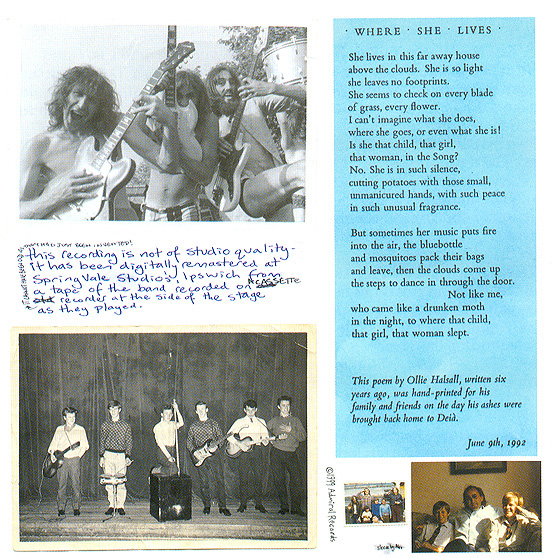 · WHERE · SHE · LIVES ·
She lives in this far away house
above the clouds. She is so light
she leaves no footprints.
She seems to check on every blade
of grass, every flower.
I can't imagine what she does,
where she goes, or even what she is!
Is she that child, that girl,
that woman, in the Song?
No. She is in such silence,
cutting potatoes with those small,
unmanicured hands, with such peace
in such unusual fragrance.
But sometimes her music puts fire
into the air, the bluebottle
and mosquitoes pack their bags
and leave, then the clouds come up
the steps to dance in through the door.
Not like me,
who came like a drunken moth
in the night, to where that child,
that girl, that woman slept.
This poem by Ollie Halsall, written six
years ago, was hand-printed for his
family and friends on the day his ashes were
brought back home to Deià.
June 9th, 1992
HAD JUST BEEN INVENTED!
this recording is not of studio quality-
it has been digitally remastered at
SpringVale Studio's, Ipswich from
a tape of the band recorded on
CASSETTE
old recorder at the side of the stage
as they played.
©1999 Admiral Records